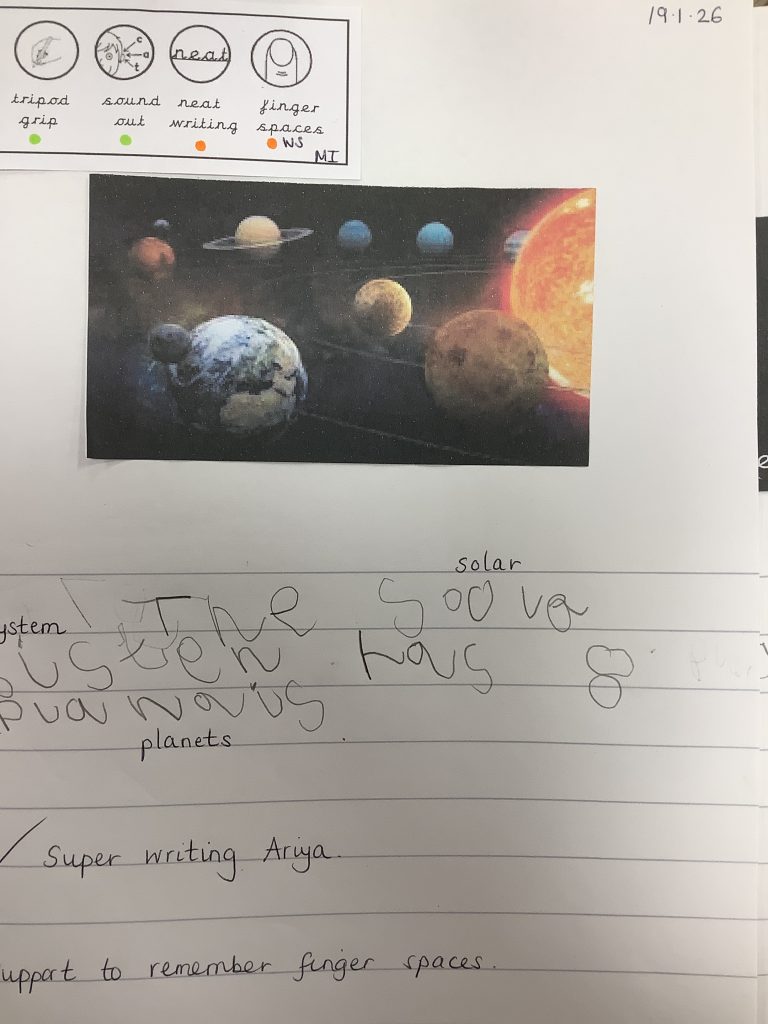 19.1.26
c
a
t
neat
tripod grip
sound out
neat writing
finger spaces
WS
MI
solar
The Soova
ystem
susten has 8
planets
Super writing Ariya.
upport to remember finger spaces.